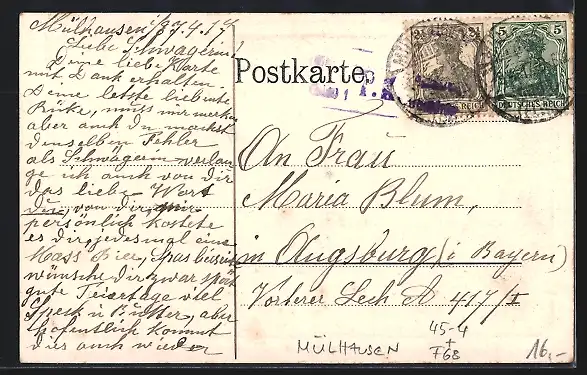 Mülhausen i/E 7.4.17
Liebe Schwägerin!
Deine liebe Karte
mit Dank erhalten.
Deine letzte liebente
Rüke, muss mir merken
aber auch du machst
denselben Fehler
als Schwägerin verlange
ich auch von dir
das liebe Wort
du, von dir,
persönlich kostete
es dir jedesmal eine
Mass Bier, Spas beiseite
wünsche dir zwar spät
gute Feiertage viel
Speck u Butter, aber
hofentlich kommt
dies auch wieder
Postkarte
2½ 2½
DEUTSCHES REICH
5 5
DEUTSCHES REICH
An Frau
Maria Blum,
in Augsburg (i Bayern)
Vorderer Lech A 417/I
MÜLHAUSEN
45-4
+
F68
16,-